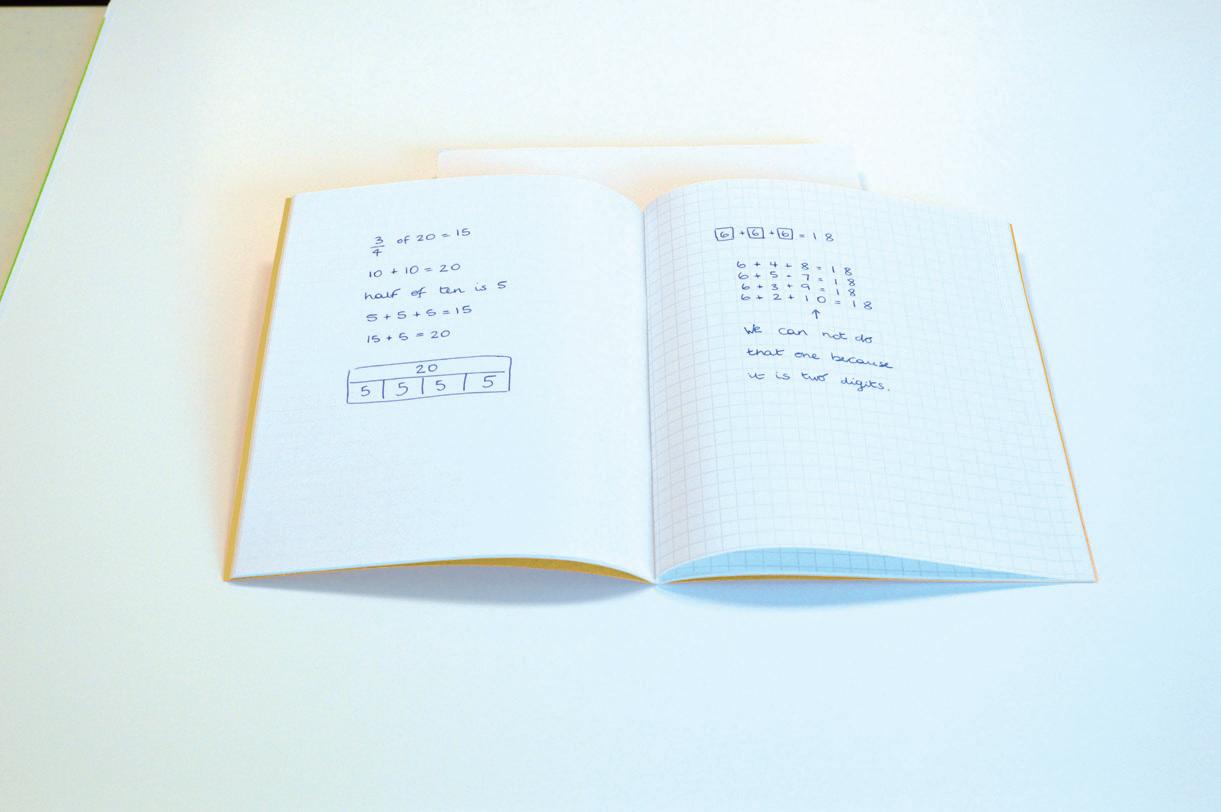 3/4 of 20 = 15
10 + 10 = 20
half of ten is 5
5 + 5 + 5 = 15
15 + 5 = 20
20
5 5 5 5
6 + 6 + 6 = 18
6 + 4 + 8 = 18
6 + 5 + 7 = 18
6 + 3 + 9 = 18
6 + 2 + 10 = 18
↑
We can not do
that one because
it is two digits.